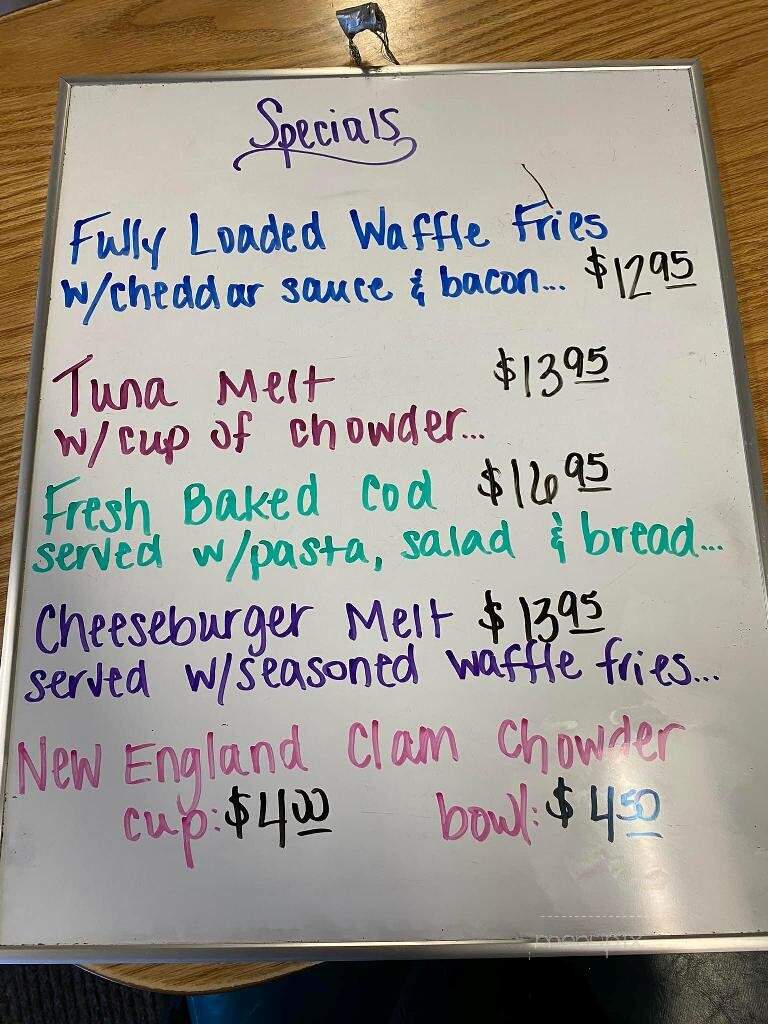 Specials
Fully Loaded Waffle Fries
w/cheddar sauce & bacon... $12.95
Tuna Melt $13.95
w/cup of chowder...
Fresh Baked Cod $16.95
served w/pasta, salad & bread...
Cheeseburger Melt $13.95
served w/seasoned waffle fries...
New England Clam Chowder
cup: $4.00 bowl: $4.50
menupix